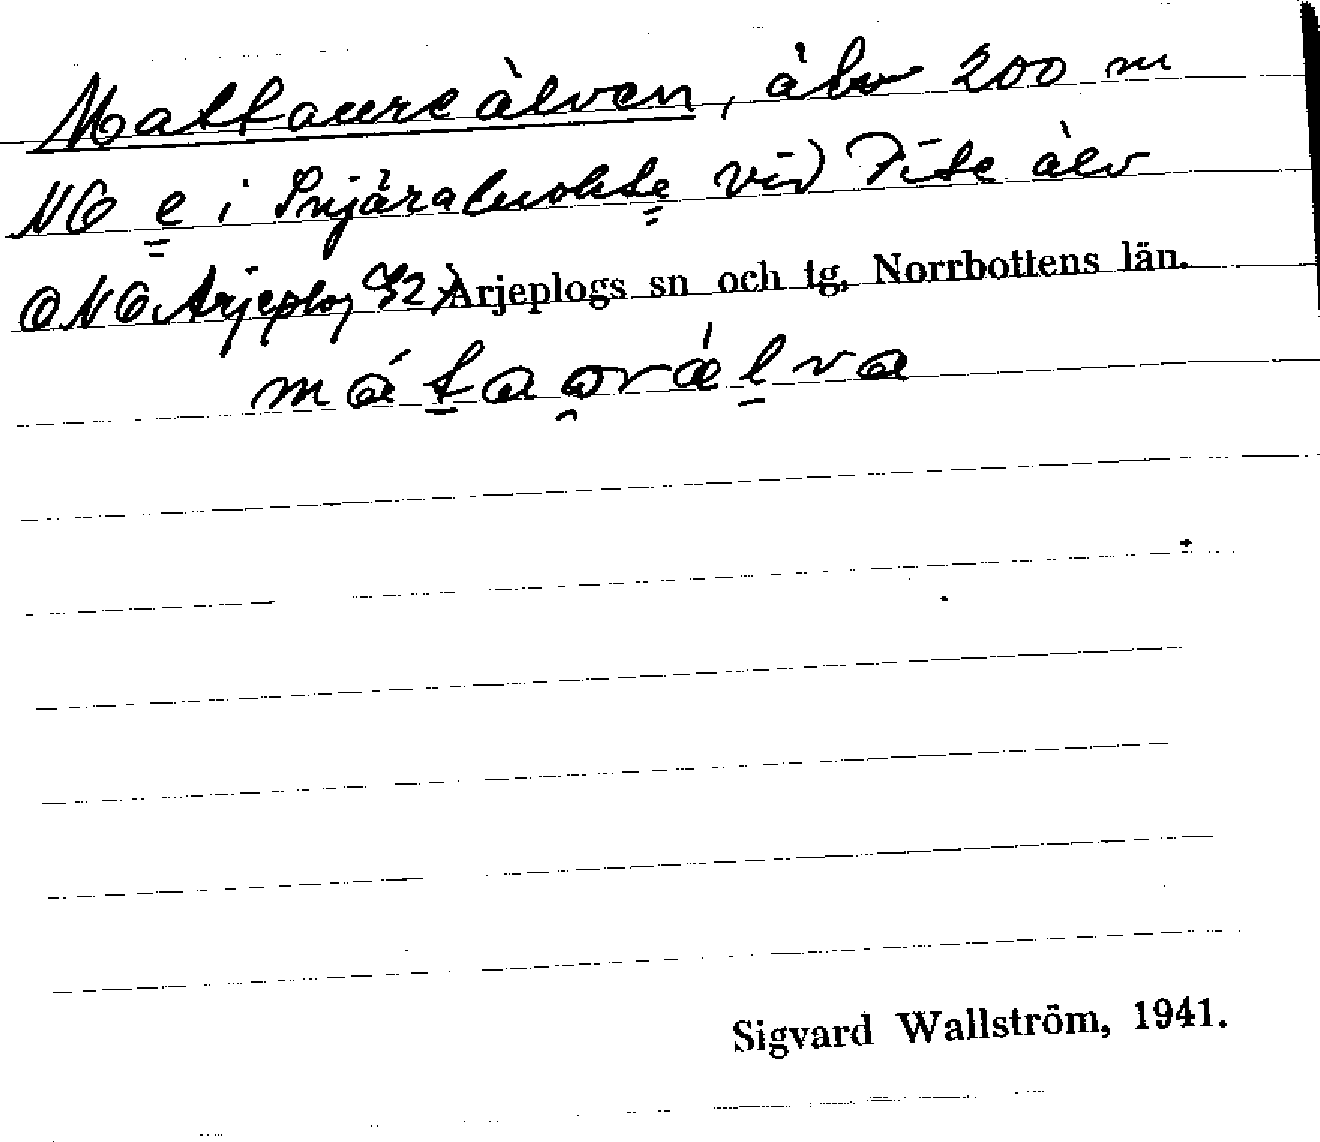 Mattaureälven, älv 200 m
NO e i Snjäraluokte vid Pite älv
ONO Arjeplog 42) Arjeplogs sn och tg, Norrbottens län.
mátaorǽlva
Sigvard Wallström, 1941.